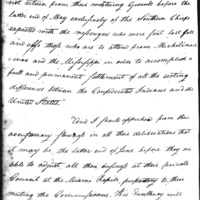 not return from their wintering Grounds before the
latter end of May exclusively of the Southern Chiefs
expected with the messengers who were sent last fall
and offs chiefs who are to attend from Michilimac
-inac and the Mississippi in order to accomplish a
full and permanent settlement of all the existing
differences between the Confederated Indians and the
United States."
"And I found apprehend from the
accustomary slowness in all their deliberations that
it may be the latter end of June before they are
able to adjust all their business at their private
Council at the Miami Rapids, preparatory to their
meeting the Commissioners. His Excellency will